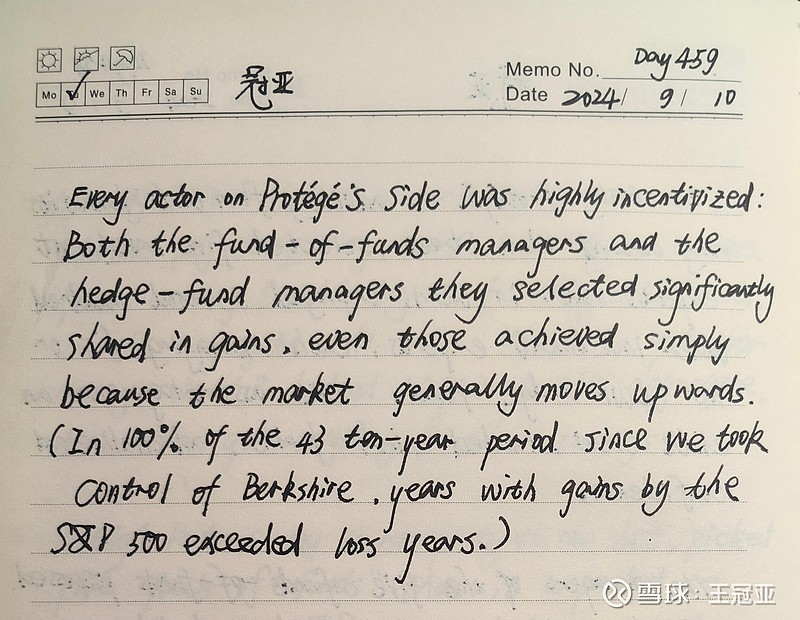 Day 459
Memo No.
Mo Tu We Th Fr Sa Su
冠亚
Date 2024/ 9/ 10
Every actor on Protégé's side was highly incentivized:
Both the fund-of-funds managers and the
hedge-fund managers they selected significantly
shared in gains, even those achieved simply
because the market generally moves upwards.
(In 100% of the 43 ten-year period since we took
control of Berkshire, years with gains by the
S&P 500 exceeded loss years.)
雪球：王冠亚